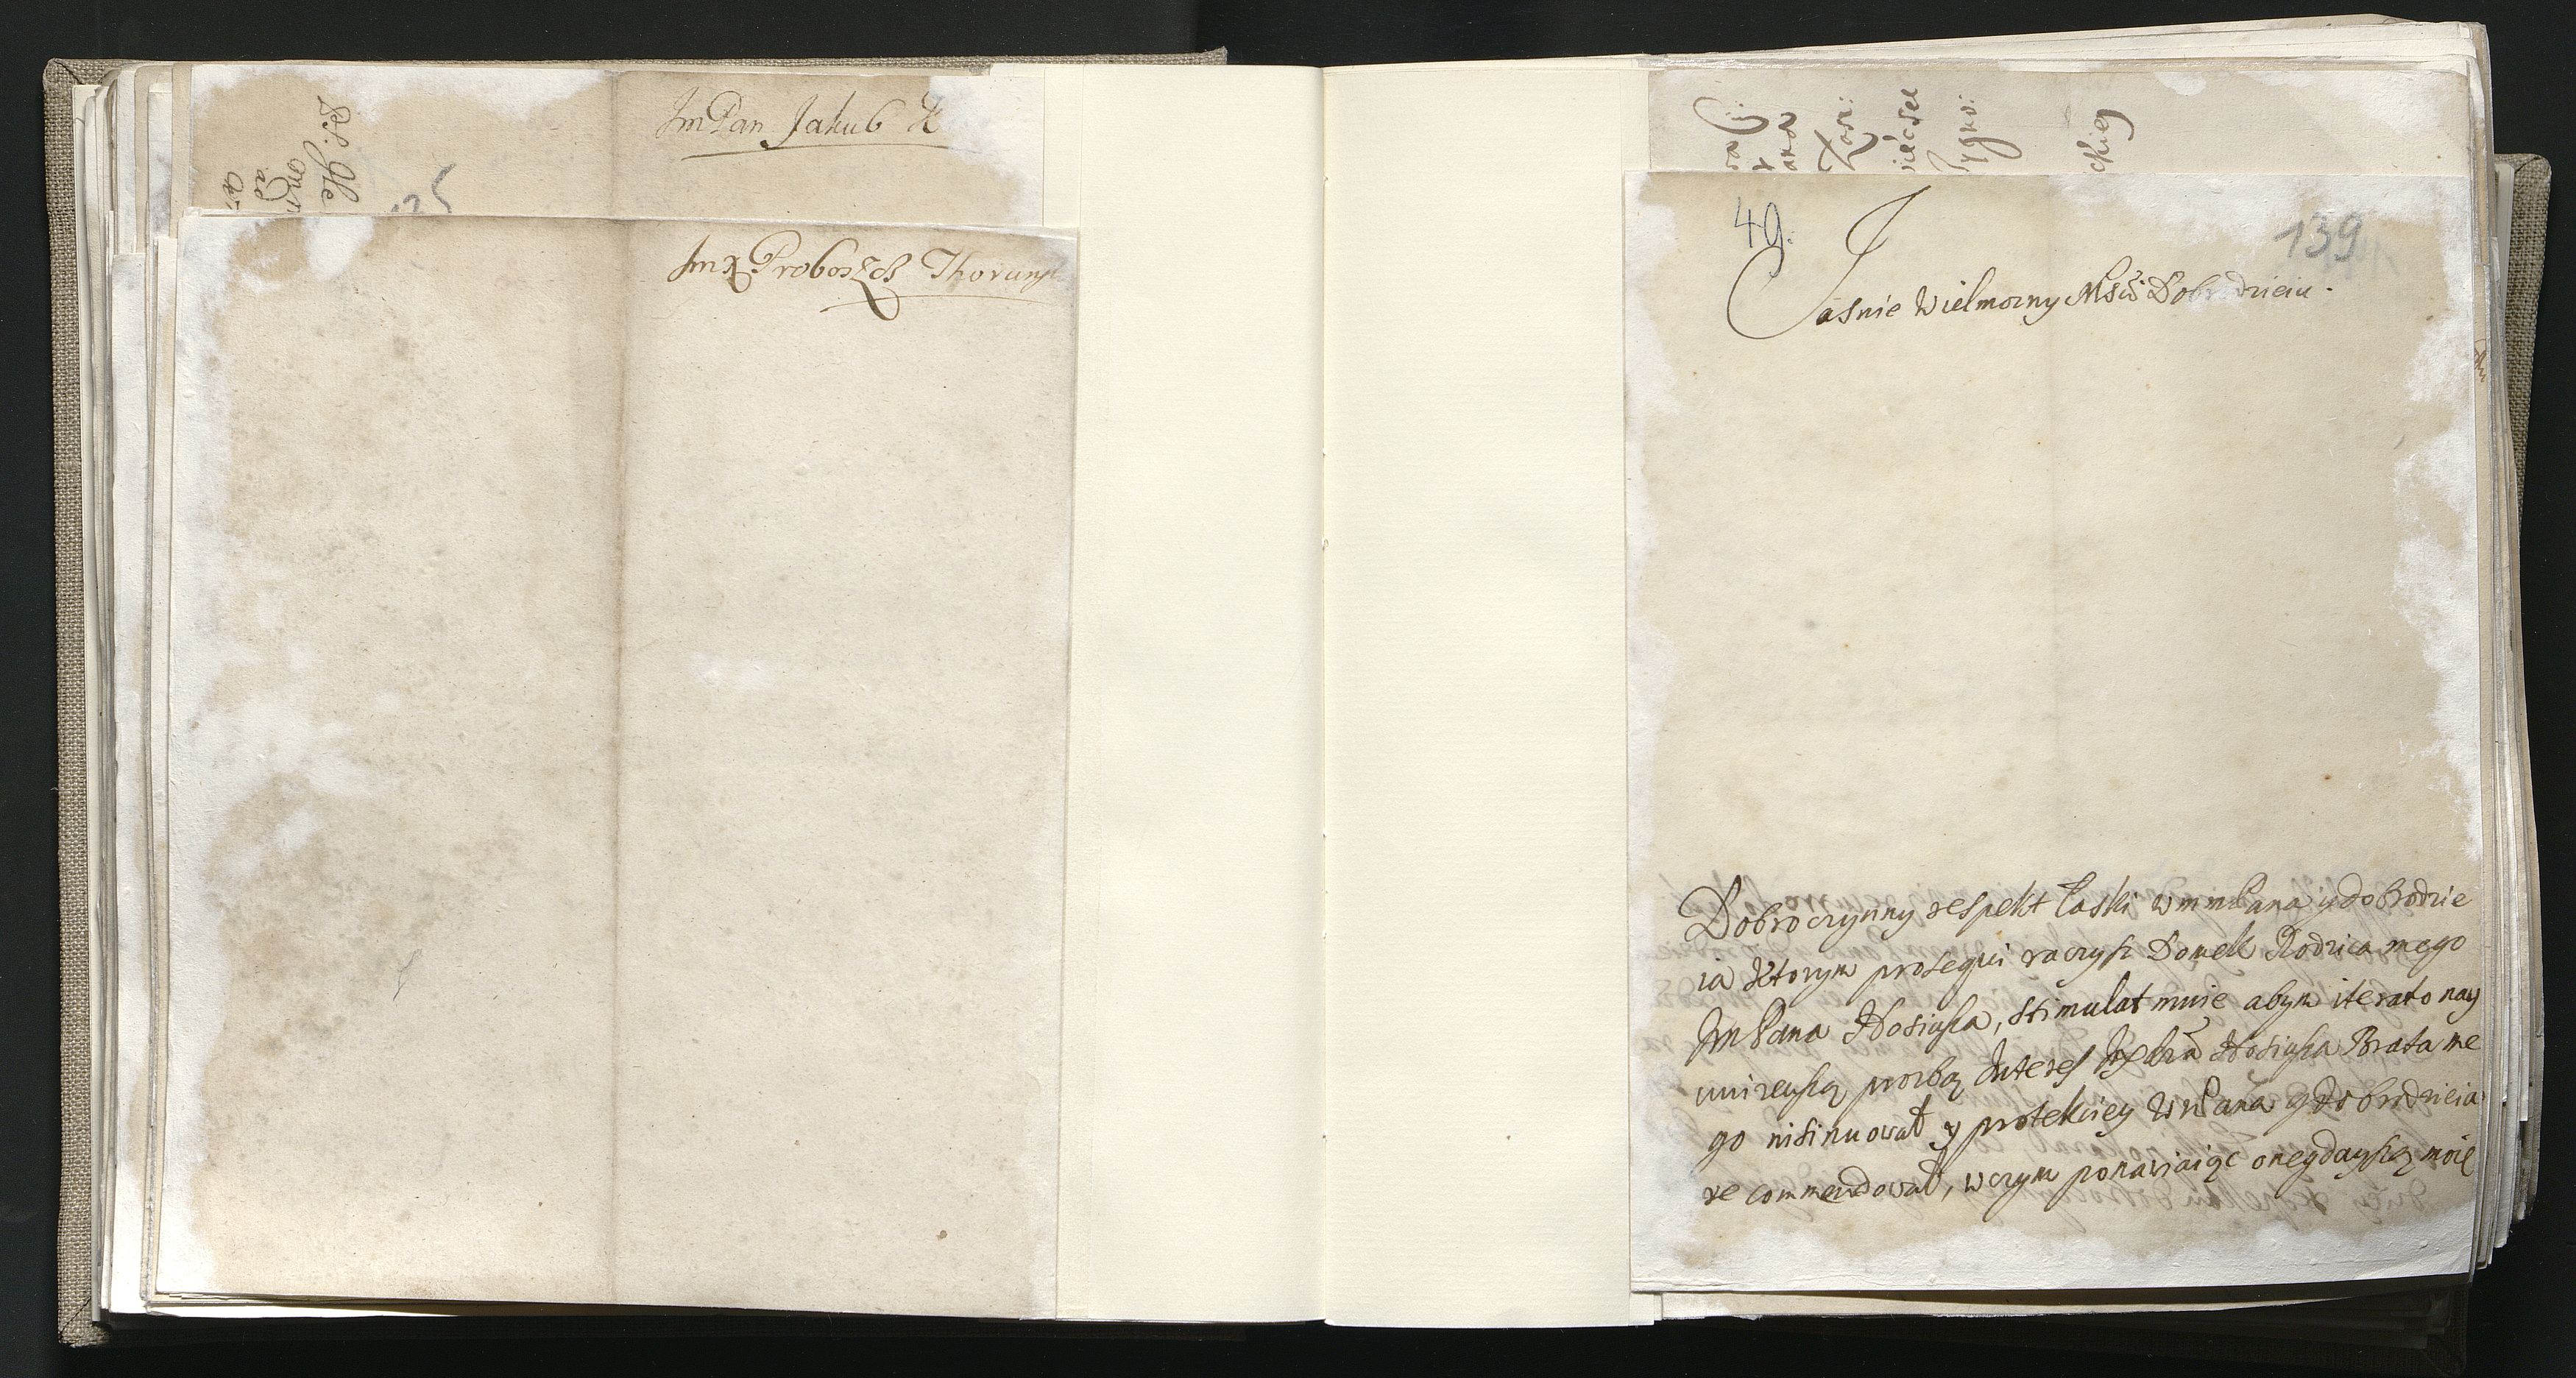 Jm Pan Jakub K
125
Jmx Proboszcz Thorunsk
49.
139
Jasnie Wielmozny Mści Dobrodzieiu.
Dobroczynny respekt Łaski wmmPana y dobrodzie
ia ktorym prosequi raczysz Domek Rodzica mego
Jm Pana Hosiusza, stimulat mnie abym iterato nay
unizenszą prozbą Interes Hosiusza Brata me
go insinuował y protekciey WmPana y dobrodzieia
recommendował, w czym ponawiaiąc onegdayszą moię